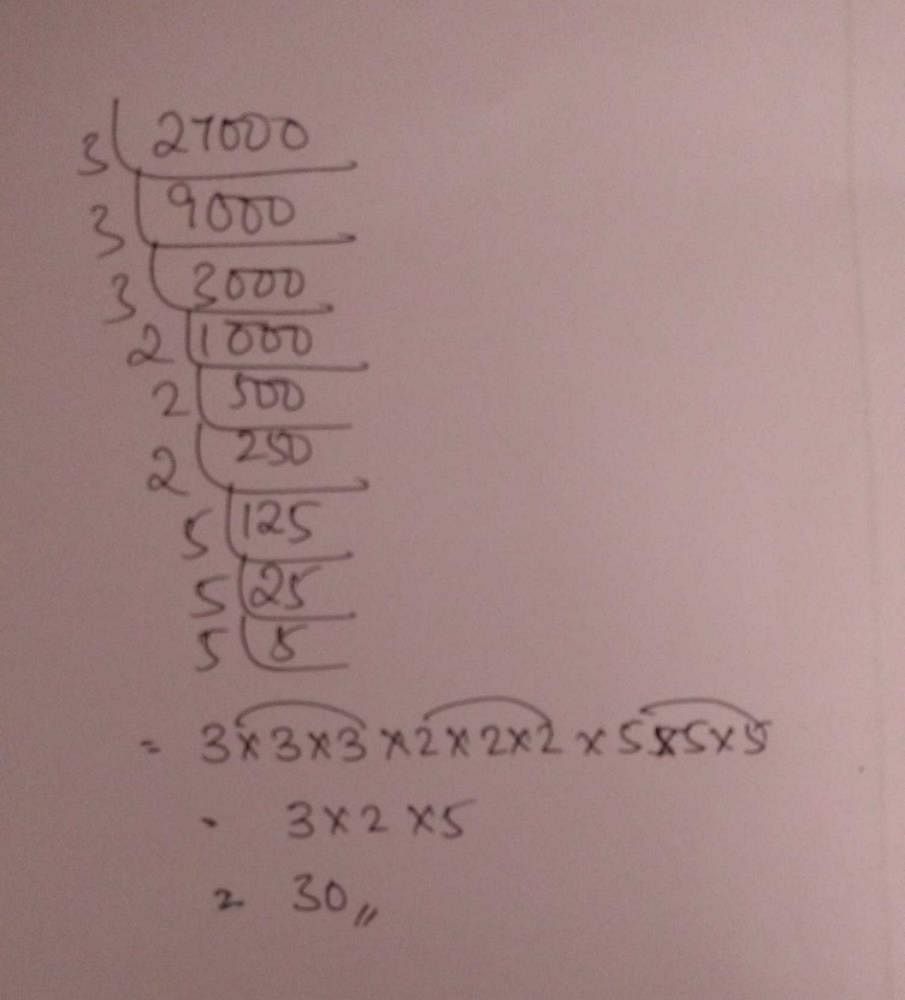 3 27000
3 9000
3 3000
2 1000
2 500
2 250
5 125
5 25
5 5
= 3×3×3×2×2×2×5×5×5
= 3×2×5
= 30,,